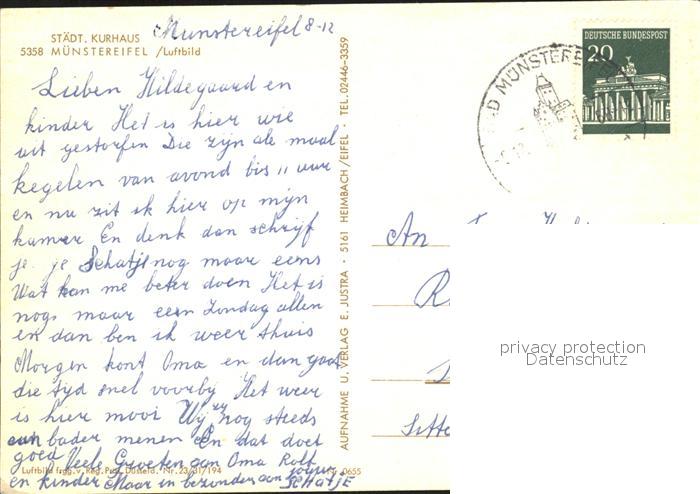 STÄDT. KURHAUS
5358 MÜNSTEREIFEL /Luftbild
Munstereifel 8-12
Lieben Hildegaard en
kinder Het is hier wie
uit gestorfen Die zijn ale maal
kegelen van avond bis 11 uur
en nu zit ik hier op mijn
kamer En denk dan schrijf
je je Schatje nog maar eens
Wat kan me beter doen Het is
nogs maar een Zondag allen
en dan ben ik weer thuis
Morgen kont Oma en dan gaat
die tijd snel voorby Het weer
is hier mooi Wij nog steeds
bader menen En dat doet
goed Veels Groeten aan Oma Rolf
en kinder Maar in bezonder aan
SCHATJE
Luftbild frgg. v. Reg. Präs. Düsseld. Nr. 23/31/194
Nr. 0655
AUFNAHME U. VERLAG E. JUSTRA · 5161 HEIMBACH /EIFEL · TEL. 02446-3359
DEUTSCHE BUNDESPOST
20
BAD MÜNSTEREI
An
Sitt
privacy protection
Datenschutz